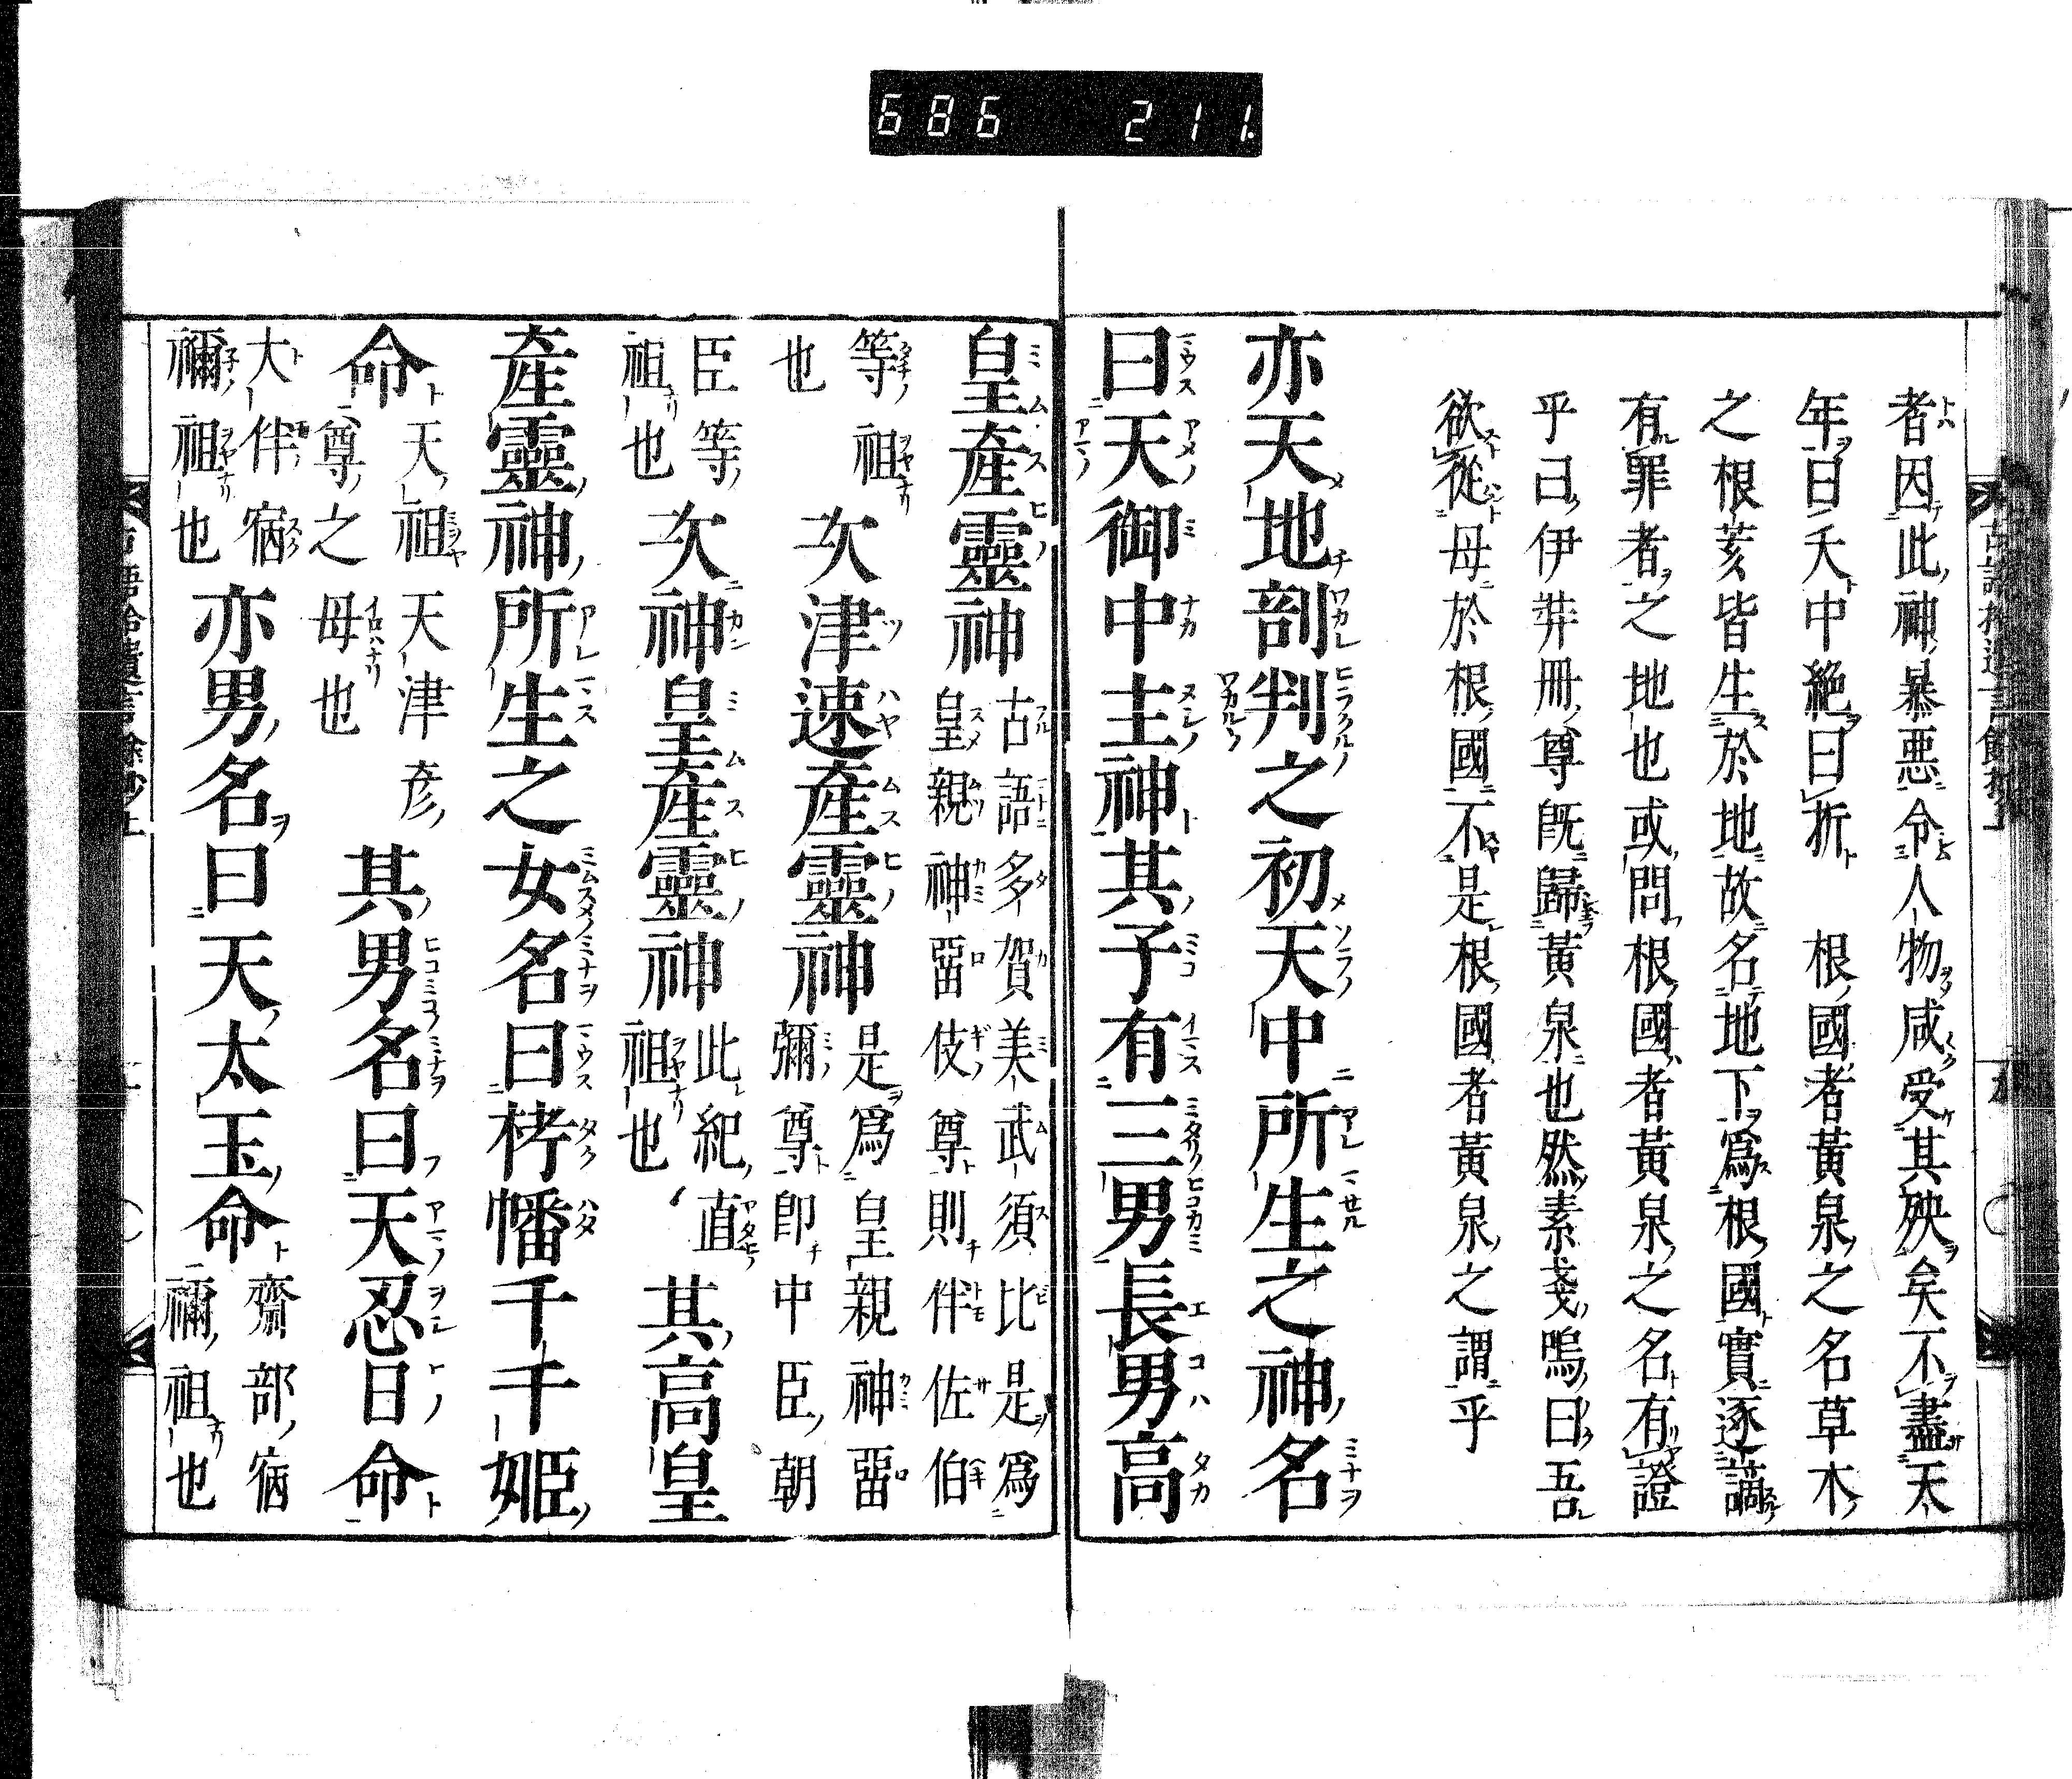 686 211.
者因此神暴悪令人物咸受其殃矣不盡天
年曰夭中絶曰折 根國者黃泉之名草木
之根荄皆生於地故名地下爲根國實逐謫
有罪者之地也或問根國者黃泉之名有證
乎曰伊弉冊尊旣歸黃泉也然素戔嗚曰吾
欲從母於根國不是根國者黃泉之謂乎
亦天地剖判之初天中所生之神名
曰天御中主神其子有三男長男高
皇產靈神古語多賀美武須比是爲
皇親神畱伎尊則伴佐伯
等祖
也
次津速產靈神是爲皇親神畱
彌尊卽中臣朝
臣等
祖也
次神皇產靈神此紀直
祖也
其高皇
產靈神所生之女名曰栲幡千千姬
命天祖天津彥
尊之母也
其男名曰天忍日命
大伴宿
禰祖也
亦男名曰天太玉命齋部宿
禰祖也